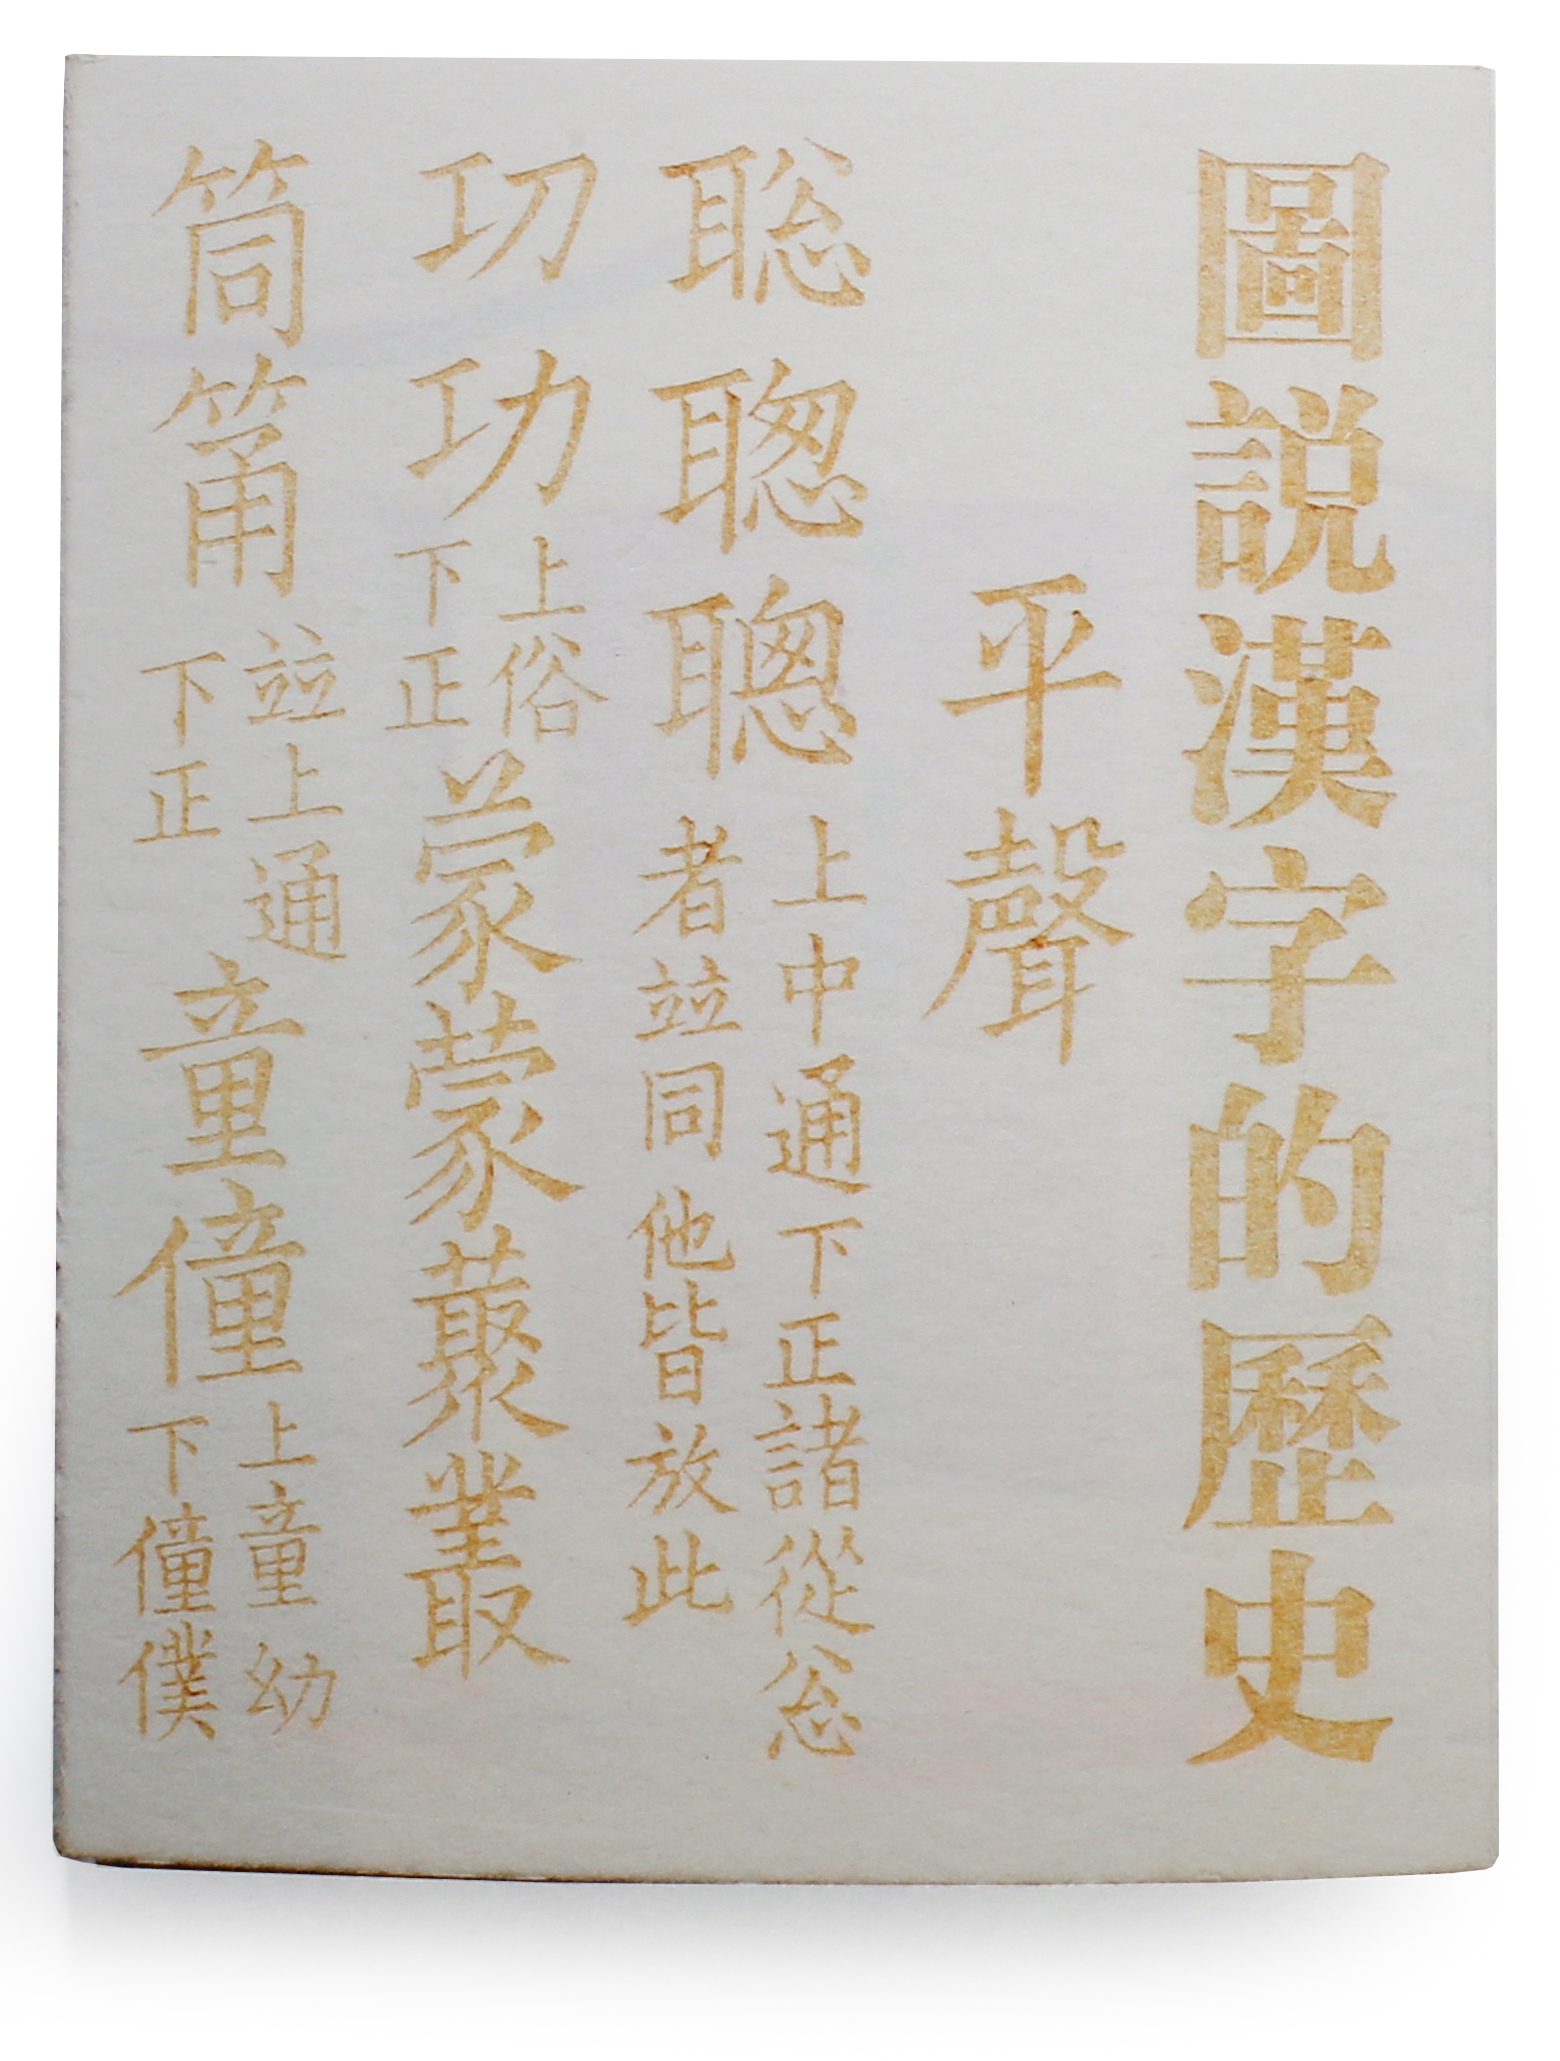 圖説漢字的歷史
平聲
聡聦聰上中通下正諸從忩者竝同他皆放此
㓛功上俗下正䝉蒙藂叢
筒筩竝上通下正童僮上童幼下僮僕